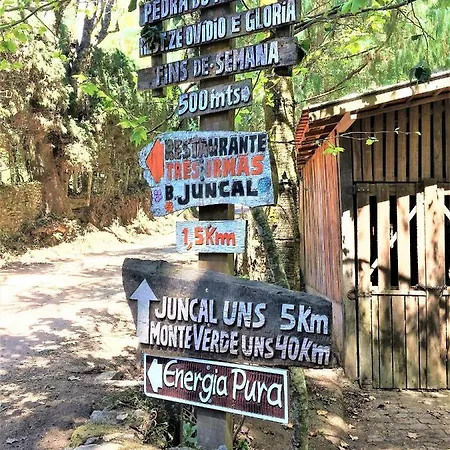 PEDRA
REST. ZE OVIDIO E GLORIA
FINS DE SEMANA
500 mts
RESTAURANTE
TRÊS IRMÃS
B. JUNCAL
1,5Km
JUNCAL UNS 5Km
MONTE VERDE UNS 40Km
Energia Pura